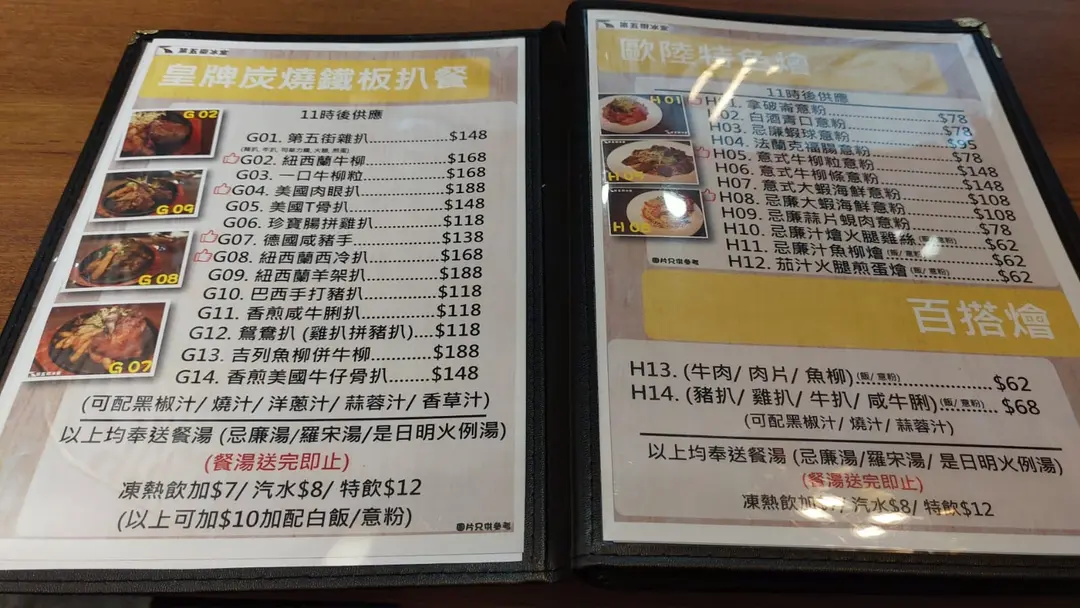 第五街冰室
皇牌炭燒鐵板扒餐
11時後供應
G01. 第五街雜扒................$148
G02. 紐西蘭牛柳................$168
G03. 一口牛柳粒................$168
G04. 美國肉眼扒................$188
G05. 美國T骨扒................$148
G06. 珍寶腸拼雞扒............$118
G07. 德國咸豬手................$138
G08. 紐西蘭西冷扒............$168
G09. 紐西蘭羊架扒............$188
G10. 巴西手打豬扒............$118
G11. 香煎咸牛脷扒............$118
G12. 鴛鴦扒 (雞扒拼豬扒)....$118
G13. 吉列魚柳併牛柳.........$188
G14. 香煎美國牛仔骨扒........$148
(可配黑椒汁/ 燒汁/ 洋蔥汁/ 蒜蓉汁/ 香草汁)
以上均奉送餐湯 (忌廉湯/羅宋湯/是日明火例湯)
(餐湯送完即止)
凍熱飲加$7/ 汽水$8/ 特飲$12
(以上可加$10加配白飯/意粉)
圖片只供參考
G 02
G 09
G 08
G 07
第五街冰室
歐陸特色燴
11時後供應
H01. 拿破崙意粉................$78
H02. 白酒青口意粉............$78
H03. 忌廉蝦球意粉............$95
H04. 法蘭克福腸意粉.........$78
H05. 意式牛柳粒意粉.........$148
H06. 意式牛柳條意粉.........$148
H07. 意式大蝦海鮮意粉......$108
H08. 忌廉大蝦海鮮意粉......$108
H09. 忌廉蒜片蜆肉意粉......$78
H10. 忌廉汁燴火腿雞絲(飯/ 意粉)...$62
H11. 忌廉汁魚柳燴(飯/ 意粉)......$62
H12. 茄汁火腿煎蛋燴(飯/ 意粉)...$62
H 01
H 05
H 08
圖片只供參考
百搭燴
H13. (牛肉/ 肉片/ 魚柳)(飯/ 意粉)................$62
H14. (豬扒/ 雞扒/ 牛扒/ 咸牛脷)(飯/ 意粉)...$68
(可配黑椒汁/ 燒汁/ 蒜蓉汁)
以上均奉送餐湯 (忌廉湯/羅宋湯/ 是日明火例湯)
(餐湯送完即止)
凍熱飲加$7/ 汽水$8/ 特飲$12